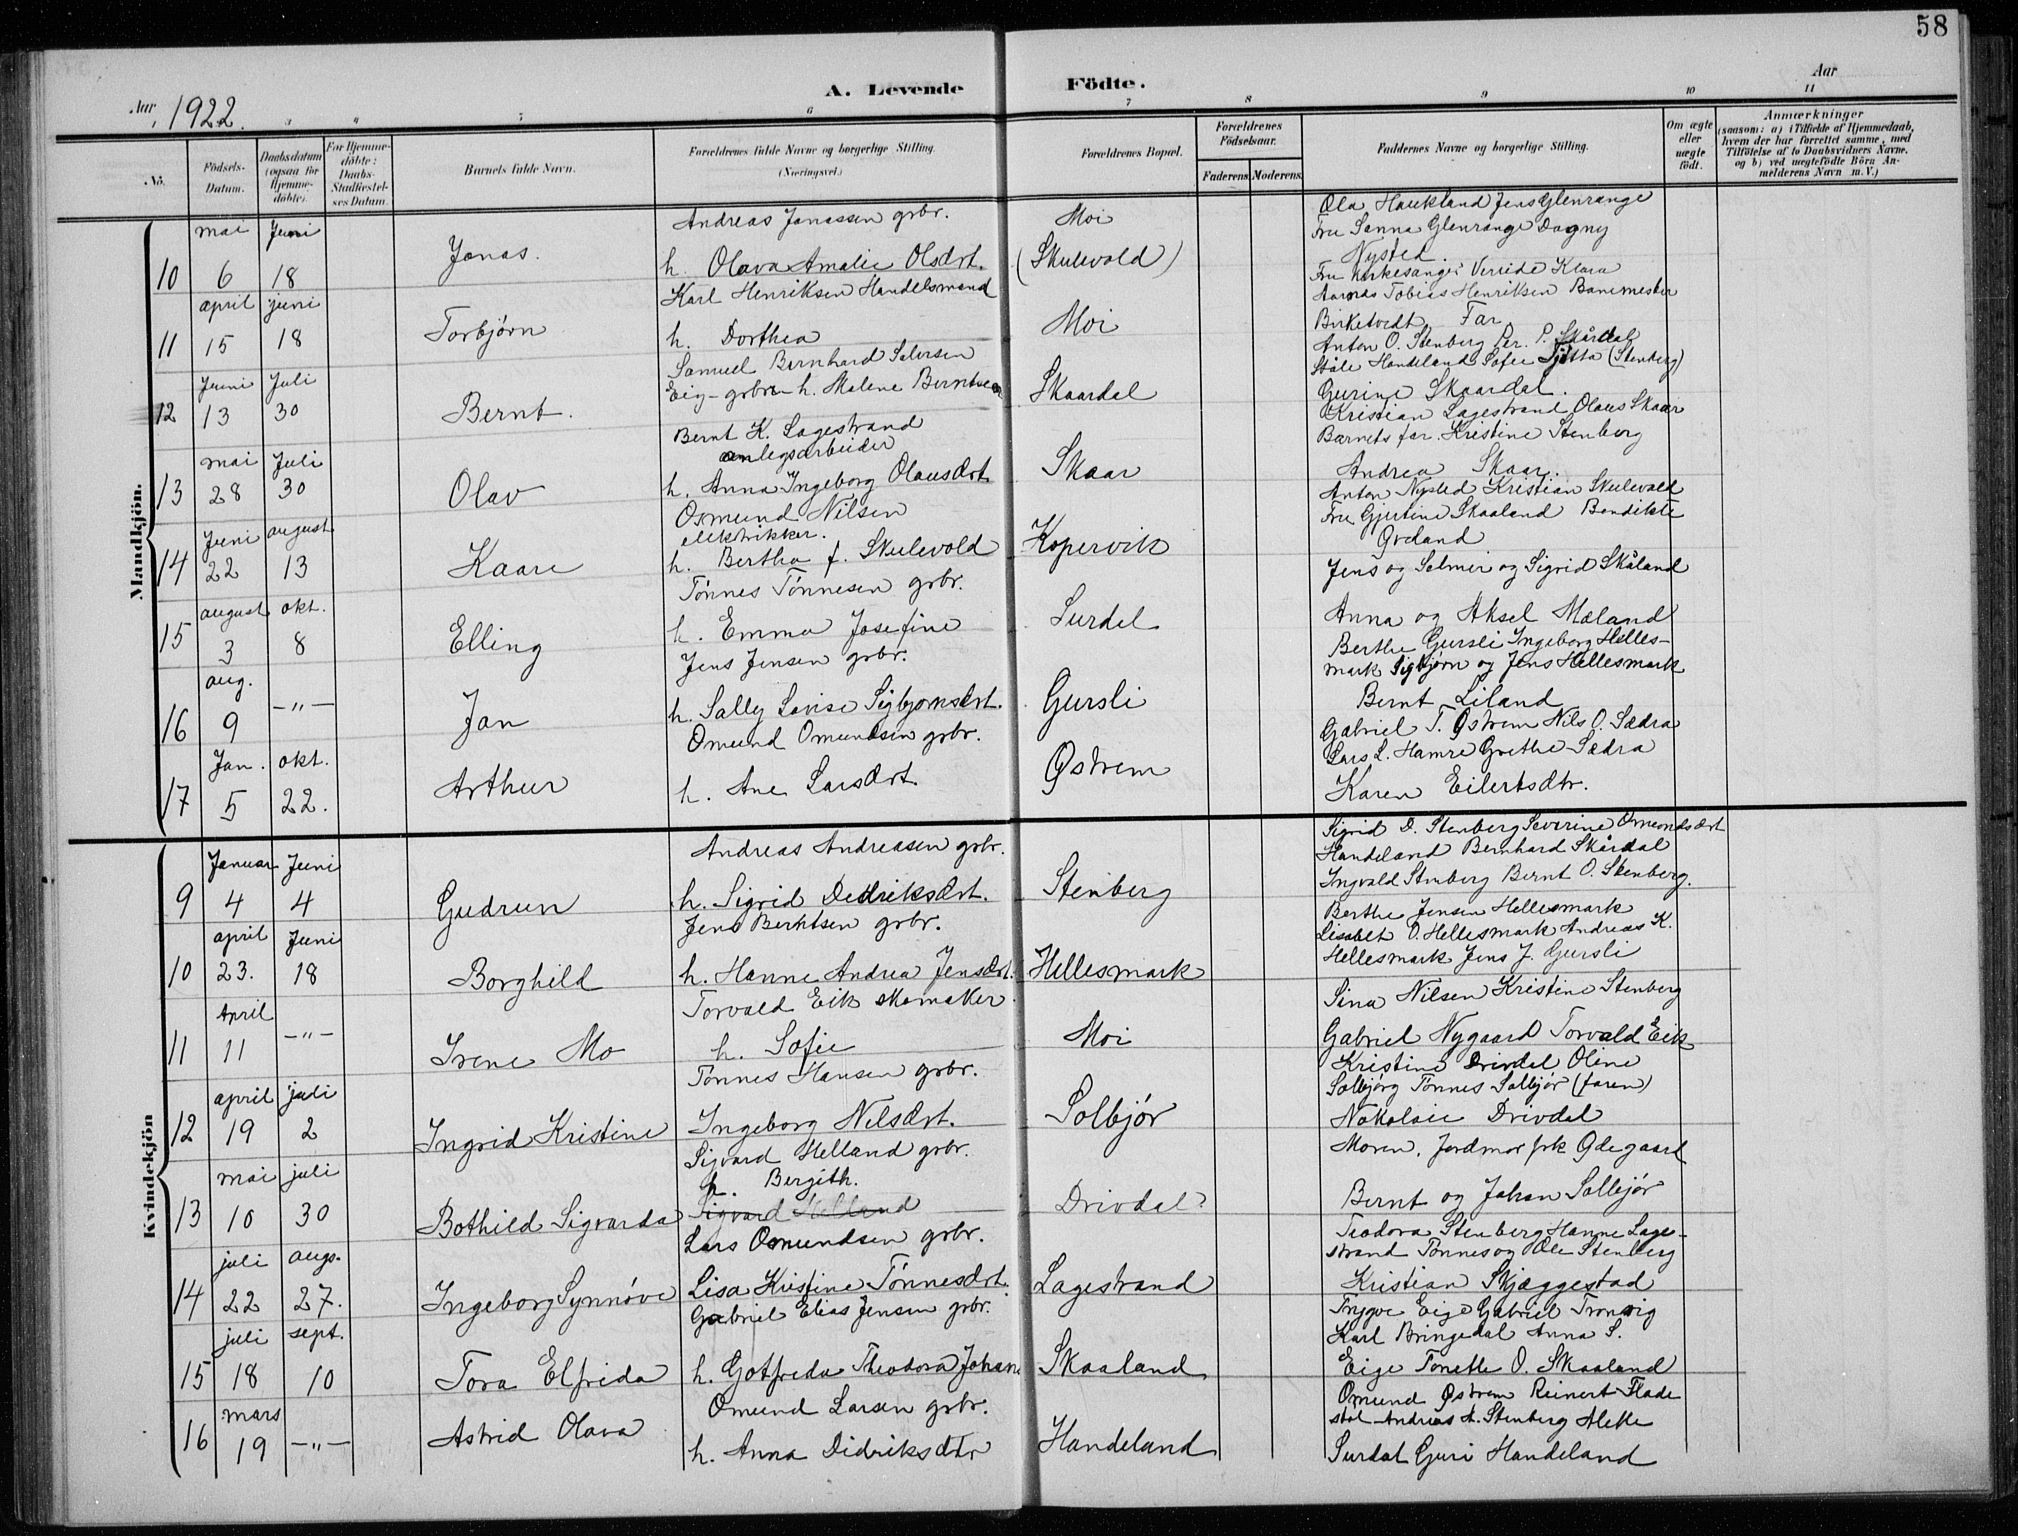 58
A. Levende Födte.
Aar 1922.
Aar
1 3 4 5 6 7 8 9 10 11
No.
Födsels-Datum.
Daabsdatum (ogsaa for Hjemme-döbte).
For Hjemme-döbte: Daabs-Stadfæstel-ses Datum.
Barnets fulde Navn.
Forældrenes fulde Navne og borgerlige Stilling.
(Næringsvei.)
Forældrenes Bopæl.
Forældrenes Födselsaar.
Faderens.
Moderens.
Faddernes Navne og borgerlige Stilling.
Om ægte eller uægte födt.
Anmærkninger
(saasom: a) i Tilfælde af Hjemmedaab, hvem der har forrettet samme, med Tilföielse af to Daabsvidners Navne, og b) ved uegtefödte Börn An-melderens Navn m. V.)
Mandkjön.
10 mai 6 Juni 18 Jonas. Andreas Jonassen grbr.
h. Olava Amalie Olsdrt.
Moi (Skulevold)
Ola Haukland Jens Glenrange
Fru Sanna Glenrange Dagny
Nysted.
11 april 15 juni 18 Torbjørn Karl Henriksen Handelsmand
h. Dorthea
Moi
Fru Kirkesanger Verride Klara
Aarnæs Tobias Henriksen Banemester
Birketvedt Far
12 Juni 13 Juli 30 Bernt. Samuel Bernhard Salvesen
Eig- grbr h. Malene Berntsen
Skaardal
Anton O. Stenberg Per. P. Skårdal
Ståle Handeland Sofie Sjøtta (Stenberg)
Gurine Skaardal.
13 mai 28 Juli 30 Olav Bernt K. Lagestrand
anlegsarbeider
h. Anna Ingeborg Olausdrt
Skaar
Kristian Lagestrand Olaus Skaar
Barnets far. Kristine Stenberg
Andrea Skaar.
14 Juni 22 august 13 Kaare Osmund Nilsen
elektrikker.
h. Bertha f. Skulevold
Kopervik
Anton Nysted Kristian Skulevold
Fru Gjertine Skaaland Bendikte
Øveland
15 august 3 okt. 8 Elling Tønnes Tønnesen grbr.
h. Emma Josefine
Surdal
Jens og Selmer og Sigrid Skåland
Anna og Aksel Mæland
16 aug. 9 -"- Jan Jens Jensen grbr.
h. Sally Lovise Sigbjornsdrt.
Gursli
Berthe Gursli Ingeborg Helles-
mark Sigbjørn og Jens Hellesmark
Bernt Liland
17 Jan. 5 okt. 22. Arthur Omund Omundsen grbr.
h. Ane Larsdrt
Østrem
Gabriel T. Østrem Nils O. Sædra
Lars L. Hamre Grethe Sædra
Karen Eilertsdtr.
Kvindekjön
9 Januar 4 Juni 4 Gudrun Andreas Andreasen grbr.
h. Sigrid Dedriksdrt.
Stenberg
Sigrid D. Stenberg Severine Omundsdrt
Handeland Bernhard Skårdal
Ingvald Stenberg Bernt O. Stenberg.
10 april 23. Juni 18 Borghild Jens Berntsen grbr.
h. Hanne Andrea Jensdrt.
Hellesmark
Berthe Jensen Hellesmark
Lisabet O. Hellesmark Andreas K.
Hellesmark Jens J. Gursli
11 April 11 -"- Irene Mo Torvald Eik skomaker
h. Sofie
Moi
Sina Nilsen Kristine Stenberg
Gabriel Nygaard Torvald Eik
12 april 19 juli 2 Ingrid Kristine Tønnes Hansen grbr.
Ingeborg Nilsdrt.
Solbjør
Kristine Drivdal Oline
Solbjørg Tønnes Solbjør (faren)
Nokolaie Drivdal
13 mai 10 juli 30 Bothild Sigvarda Sigvard Helland grbr.
h. Bergith.
Sigvard Helland
Drivdal
Moren. Jordmor frk Ødegaard
Bernt og Johan Solbjør
14 juli 22 augs. 27. Ingeborg Synnøve Lars Osmundsen grbr.
Lisa Kristine Tønnesdrt.
Lagestrand
Teodora Stenberg Hanne Lage-
strand Tønnes og Ole Stenberg
Kristian Skjæggestad
15 juli 18 sept. 10 Tora Elfrida Gabriel Elias Jensen grbr.
h. Gotfreda Theodora Johan
Skaaland
Trygve Eige Gabriel Tronvig
Karl Bringedal Anna S.
Eige Tonette O. Skaaland
16 mars 19 -"- Astrid Olava Omund Larsen grbr.
h. Anna Didriksdtr
Handeland
Omund Østrem Reinert Flade
stol Andreas A. Stenberg Mette
Surdal Guri Handeland